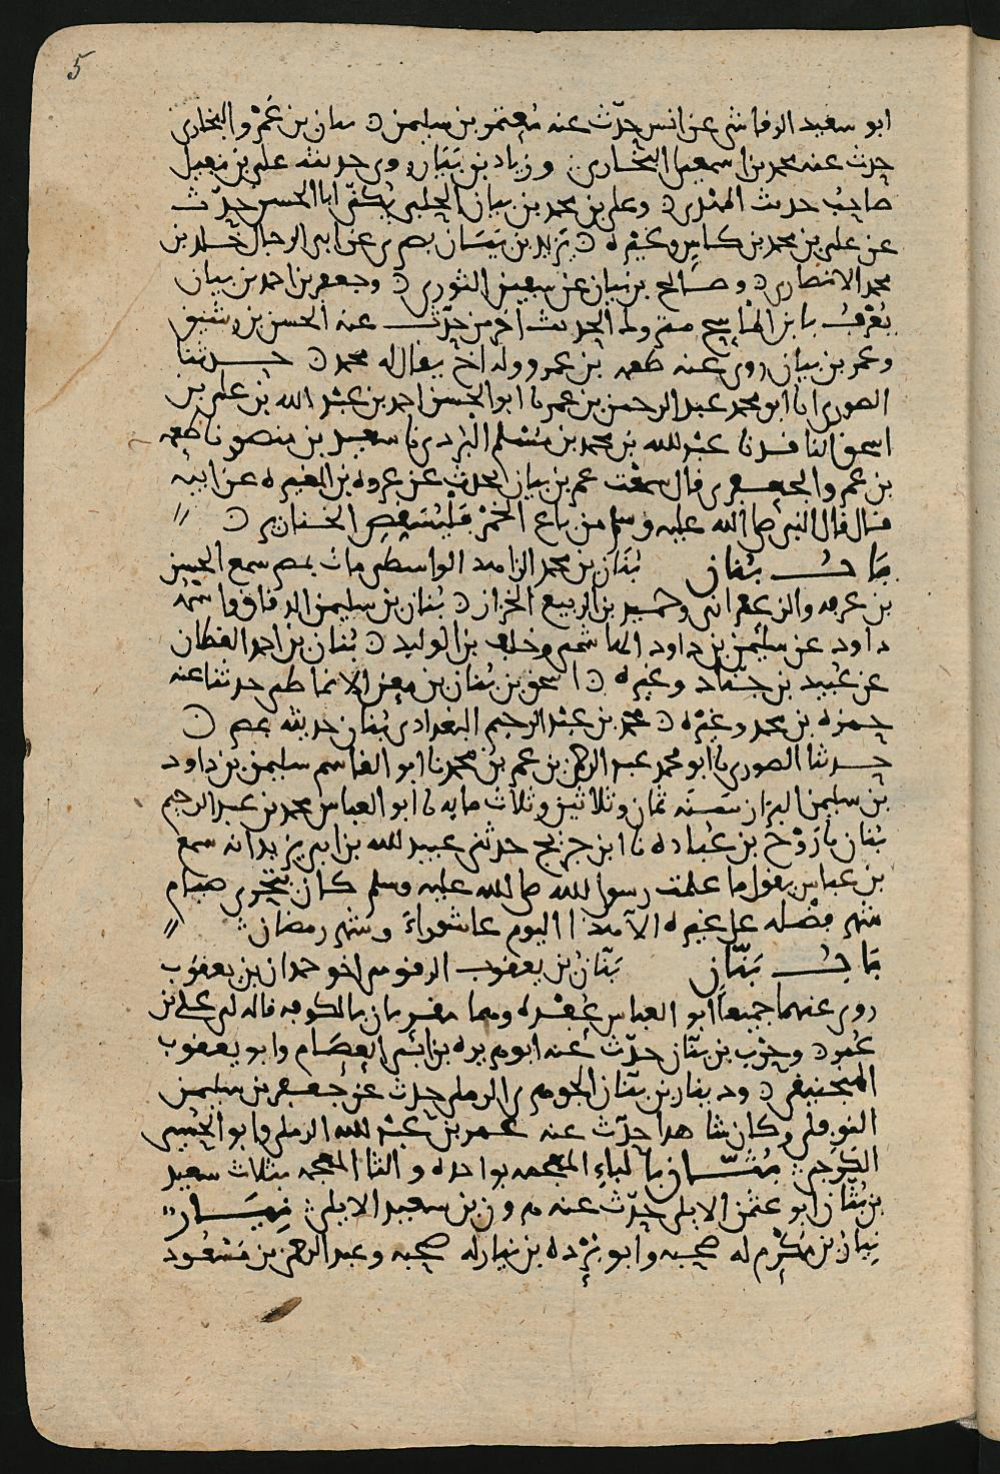 5
ابو سعيد الرقاشي عن انس حدّث عنه مُعتمر بن سليمن ن بيان بن عَمْرو البخاري
حدث عنه محمد بن اسمعيل البخاري وزياد بن بَيَان روى حديثه علي بن نفيل
صاحبُ حديث المهْدي ن وعلي بن محمد بن بيان الحلبي يُكنّى ابا الحسن حدّث
عن علي بن محمد بن كاس وغيْره ن يَزيد بن بَيَان بصري عن ابي الرحال خالد بن
محمد الانصاري ن وصالح بن بيان عن سفيان الثوري ن وجعفر بن احمد بن بيان
يُعْرَفُ بابن الماسح مصري وله الحديث اخر من حدّث عنه الحسن بن رشيق
وعمر بن بيان روى عنه طعمه بن عمرو وله اخ يقال له محمد ن حدثنا
الصوري انا ابو محمد عبد الرحمن بن عمر نا ابو الحسن احمد بن عبْد الله بن علي بن
اسحق الناقد نا عبْد الله بن محمد بن مسْلم نا سعيد بن منصور نا طعمه
بن عمرو الجعفري قال سمعْت عمر بن بيان يحدث عن عروه بن المغيره عن ابيه
قال قال النبي صلى الله عليه وسلم من باع الخمْرَ فَلْيُشَقِّصِ الخنازير ن
بَابُ بُنَان بُنَان بن محمد الزاهد الواسطي مات بمصر سمع الحسن
بن عرفه والزعفراني وحميد بن الربيع الخزاز ن بُنان بن سليمن الدقاق واسْمه
داود عن سليمن بن داود الهاشمي وخلف بن الوليد ن بُنان بن احمد القطان
عن عُبيد بن جنّاد وغيره ن اسحق بن بُنان بن معن الانماطي حدثنا عنه
حمزه بن محمد وغيْره ن محمد بن عبْد الرحيم البغدادي بُنان حديثه بمصر ن
حدثنا الصوري نا ابو محمد عبد الرحمن بن عمر بن محمد نا ابو القاسم سليمن بن داود
بن سليمن البزاز سَنَة ثمان وثلاثين وثلاث مايه نا ابو العباس محمد بن عبد الرحيم
بُنان نا رَوْح بن عُباده نا ابن جريج حدثني عبيد الله بن ابي يزيد انه سمع
بن عباس يقول ما علمت رسول الله صلى الله عليه وسلم كان يتَحرى صيام
شهر فضْله على غيره الا هذا اليوم عاشوراءَ وشهر رمضان
بَابُ بَنّان بَنّانُ بن يعقوب الزقومي اخو حمدان بن يعقوب
روى عنهما جميعاً ابو العباس بن عُقْده وهما بالكوفه قاله لي علي بن
عُمر ن وحرْب بن بنّان حدّث عنه ابو بن العصّام وابو يعقوب
المنجنيقي ن ودينار بن بنّان الجوهري الرملي حدث عن جعفر بن سليمن
النوفلي وكان شاهدا حدّث عنه عمر بن عبْد الله الرملي وابو الحُسين
الكرجي بُثَّان بالباء المعجمه بواحده والثا المعجمه بثلاث سعيد
بن بُثّان ابو عثمن الايلي حدّث عنه هرون بن سعيد الايلي نِيَار
نِيارُ بن مُكْرَم له صحْبه وابو بُرْده بن نيار له صحْبه وعبد الرحمن بن مسْعُود